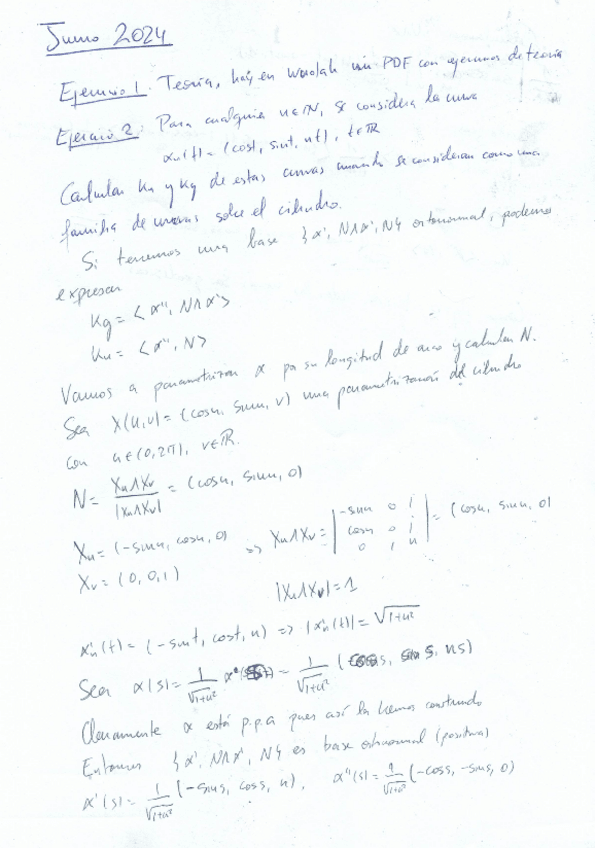 Junio 2024
Ejercicio 1. Teoría, hay en Wuolah un PDF con ejercicios de teoría
Ejercicio 2: Para cualquier n∈ℕ, se considera la curva
αn(t) = (cost, sint, nt), t∈ℝ
Calcular Kn y Kg de estas curvas cuando se consideran como una
familia de curvas sobre el cilindro.
Si tenemos una base {α', N∧α', N} ortonormal, podemos
expresar
Kg = <α'', N∧α'>
Kn = <α'', N>
Vamos a parametrizar α por su longitud de arco y calcular N.
Sea X(u,v) = (cosu, sinu, v) una parametrización del cilindro
con u∈(0,2π), v∈ℝ.
N = Xu∧Xv / |Xu∧Xv| = (cosu, sinu, 0)
Xu = (-sinu, cosu, 0) => Xu∧Xv = |-sinu 0 i; cosu 0 j; 0 1 k| = (cosu, sinu, 0)
Xv = (0, 0, 1)
|Xu∧Xv| = 1
α'n(t) = (-sint, cost, n) => |α'n(t)| = √(1+n²)
Sea α(s) = 1/√(1+n²) = 1/√(1+n²) (coss, sins, ns)
Claramente α está p.p.a pues así la hemos construido
Entonces {α', N∧α', N} es base ortonormal (positiva)
α'(s) = 1/√(1+n²) (-sins, coss, n), α''(s) = 1/√(1+n²) (-coss, -sins, 0)